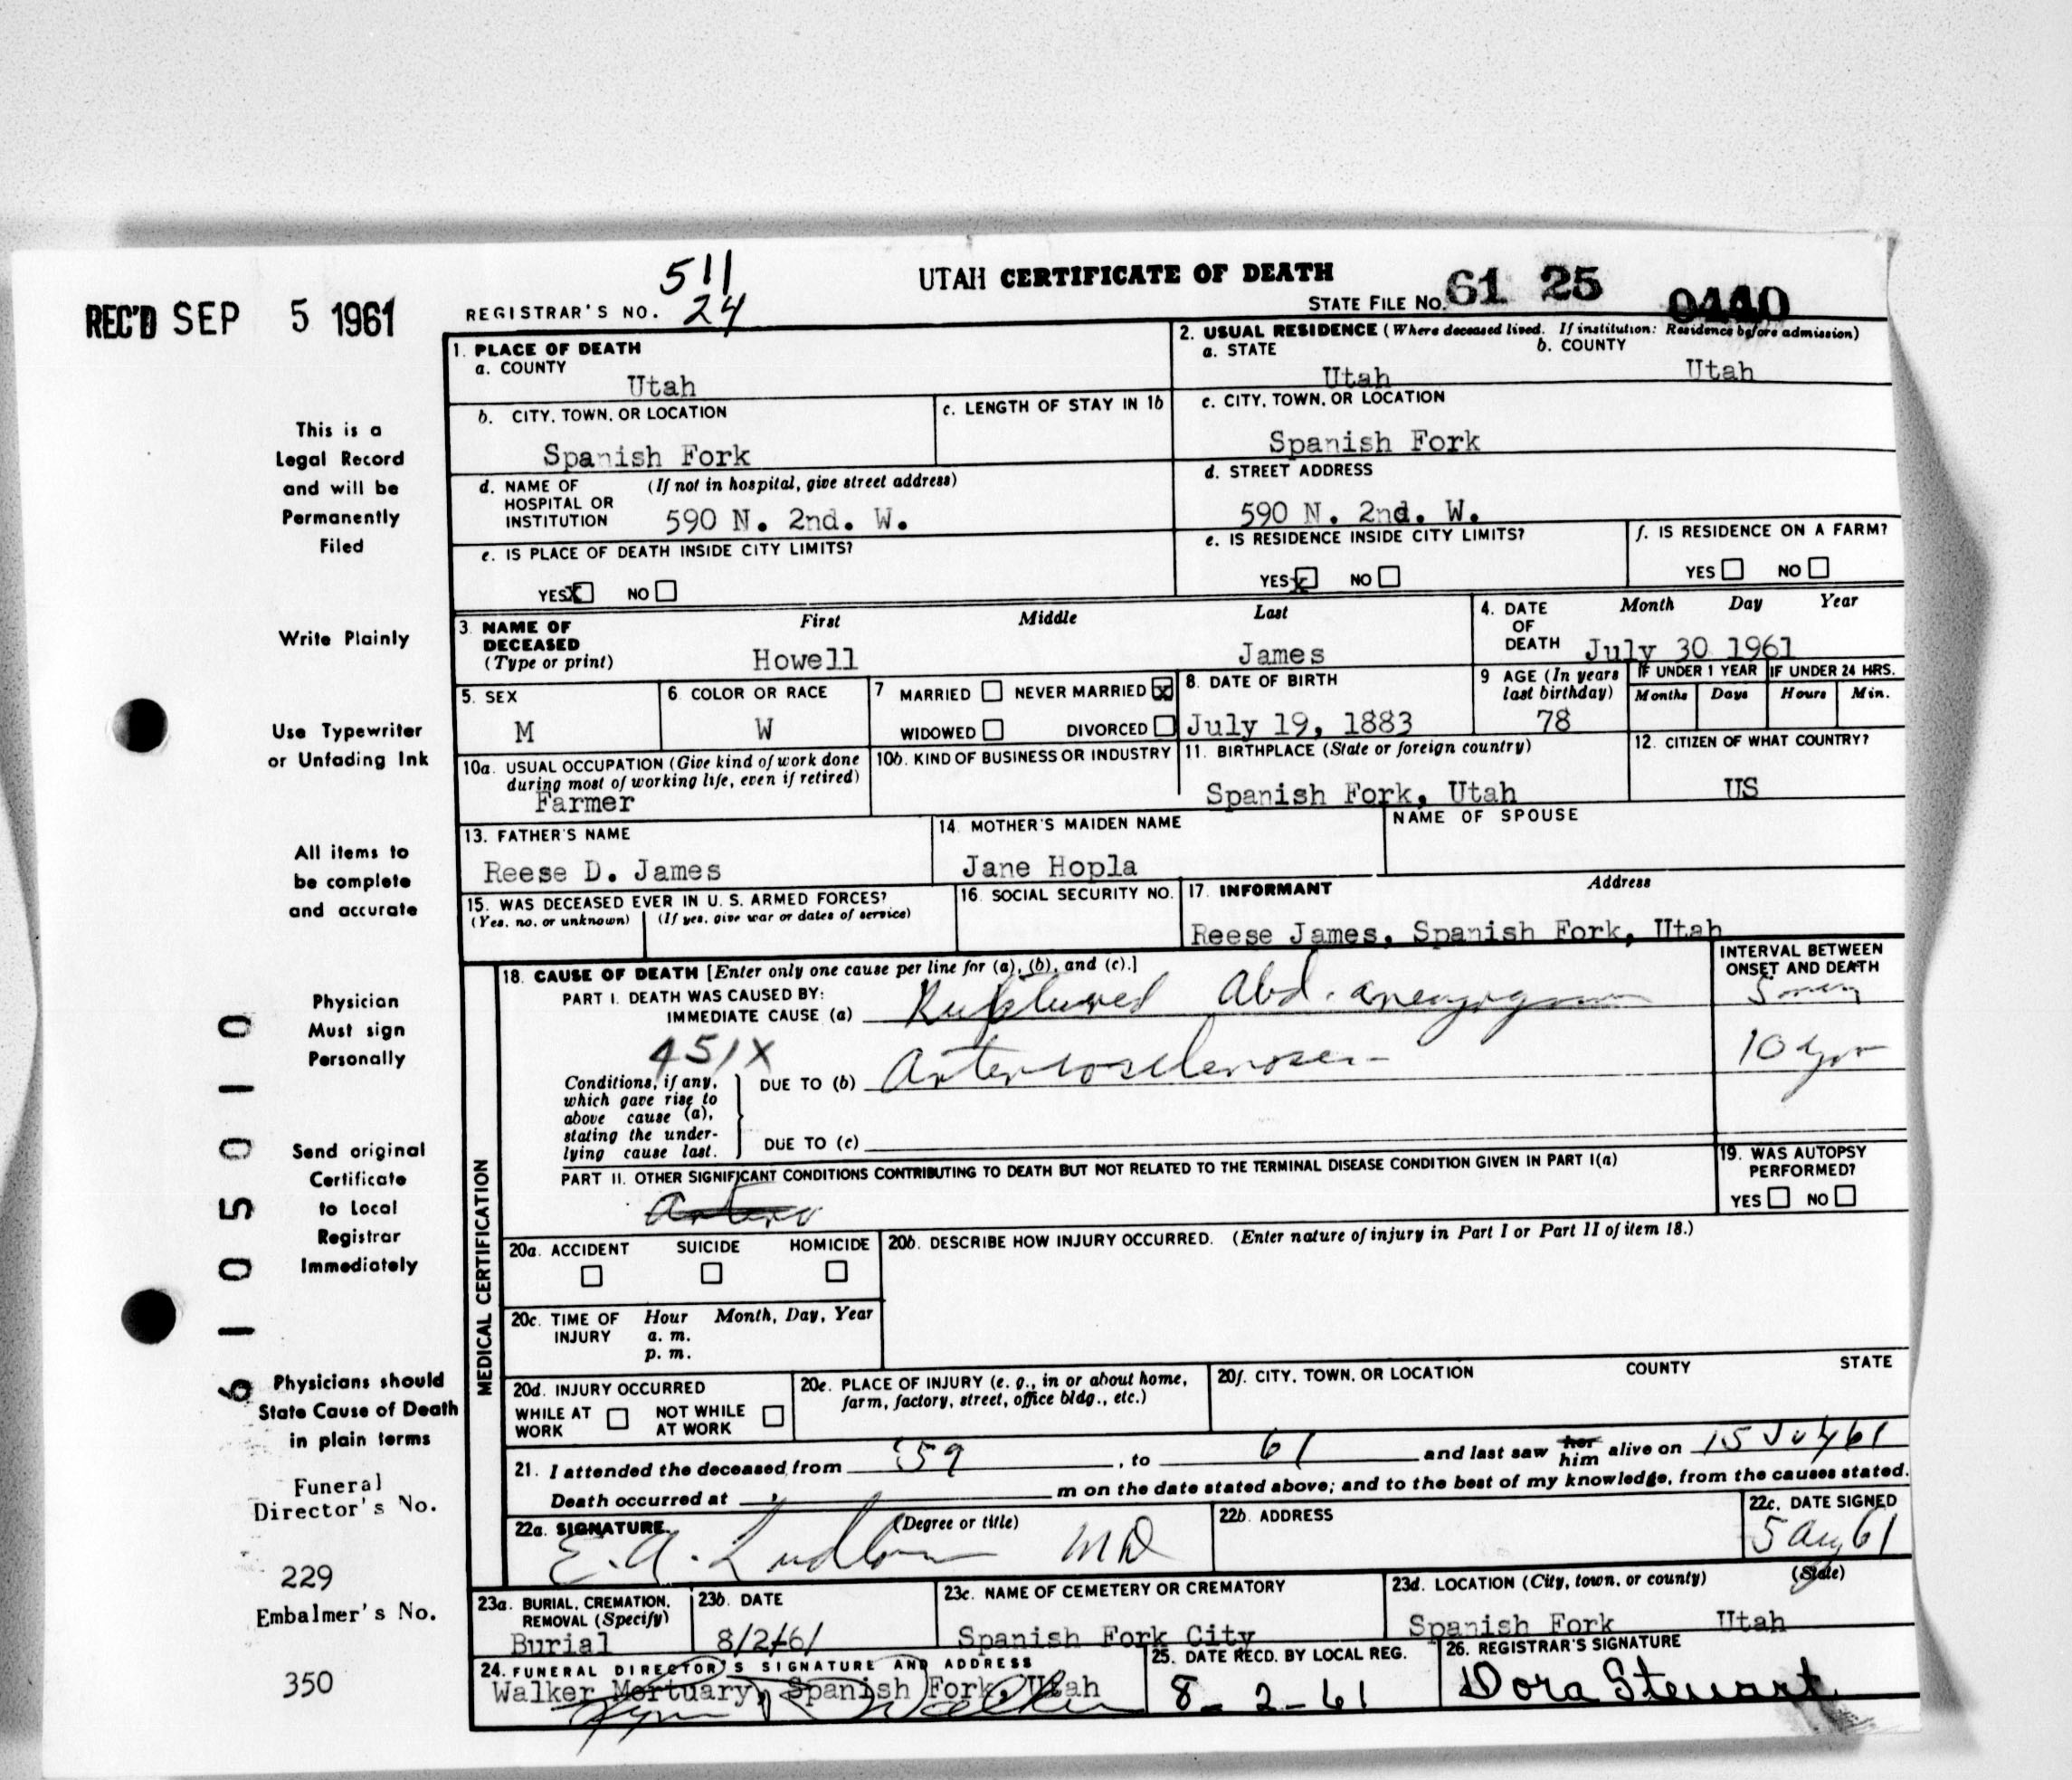 UTAH CERTIFICATE OF DEATH
REC'D SEP 5 1961
REGISTRAR'S NO. 511
24
STATE FILE NO. 61 25 0440
This is a
Legal Record
and will be
Permanently
Filed
Write Plainly
Use Typewriter
or Unfading Ink
All items to
be complete
and accurate
Physician
Must sign
Personally
Send original
Certificate
to Local
Registrar
Immediately
Physicians should
State Cause of Death
in plain terms
Funeral
Director's No.
229
Embalmer's No.
350
61050 10
1. PLACE OF DEATH
a. COUNTY
Utah
2. USUAL RESIDENCE (Where deceased lived. If institution: Residence before admission)
a. STATE b. COUNTY
Utah Utah
b. CITY, TOWN, OR LOCATION
Spanish Fork
c. LENGTH OF STAY IN 1b
c. CITY, TOWN, OR LOCATION
Spanish Fork
d. NAME OF (If not in hospital, give street address)
HOSPITAL OR
INSTITUTION 590 N. 2nd. W.
d. STREET ADDRESS
590 N. 2nd. W.
e. IS PLACE OF DEATH INSIDE CITY LIMITS?
YES X NO
e. IS RESIDENCE INSIDE CITY LIMITS?
YES X NO
f. IS RESIDENCE ON A FARM?
YES NO
3. NAME OF First Middle Last
DECEASED
(Type or print) Howell James
4. DATE Month Day Year
OF
DEATH July 30 1961
5. SEX
M
6. COLOR OR RACE
W
7 MARRIED NEVER MARRIED X
WIDOWED DIVORCED
8. DATE OF BIRTH
July 19, 1883
9 AGE (In years
last birthday)
78
IF UNDER 1 YEAR IF UNDER 24 HRS.
Months Days Hours Min.
10a. USUAL OCCUPATION (Give kind of work done
during most of working life, even if retired)
Farmer
10b. KIND OF BUSINESS OR INDUSTRY
11. BIRTHPLACE (State or foreign country)
Spanish Fork, Utah
12. CITIZEN OF WHAT COUNTRY?
US
13. FATHER'S NAME
Reese D. James
14. MOTHER'S MAIDEN NAME
Jane Hopla
NAME OF SPOUSE
15. WAS DECEASED EVER IN U. S. ARMED FORCES?
(Yes, no, or unknown) (If yes, give war or dates of service)
16. SOCIAL SECURITY NO.
17. INFORMANT Address
Reese James, Spanish Fork, Utah
MEDICAL CERTIFICATION
18. CAUSE OF DEATH [Enter only one cause per line for (a), (b), and (c).]
INTERVAL BETWEEN
ONSET AND DEATH
PART I. DEATH WAS CAUSED BY:
IMMEDIATE CAUSE (a) Ruptured Abd.
451X
Conditions, if any,
which gave rise to
above cause (a),
stating the under-
lying cause last.
DUE TO (b) Arteriosclerosis 10 yrs
DUE TO (c)
PART II. OTHER SIGNIFICANT CONDITIONS CONTRIBUTING TO DEATH BUT NOT RELATED TO THE TERMINAL DISEASE CONDITION GIVEN IN PART I(a)
19. WAS AUTOPSY
PERFORMED?
YES NO
20a. ACCIDENT SUICIDE HOMICIDE
20b. DESCRIBE HOW INJURY OCCURRED. (Enter nature of injury in Part I or Part II of item 18.)
20c. TIME OF Hour Month, Day, Year
INJURY a. m.
p. m.
20d. INJURY OCCURRED
WHILE AT NOT WHILE
WORK AT WORK
20e. PLACE OF INJURY (e. g., in or about home,
farm, factory, street, office bldg., etc.)
20f. CITY, TOWN, OR LOCATION COUNTY STATE
21. I attended the deceased from 59, to 61 and last saw her him alive on 15 July 61
Death occurred at m on the date stated above; and to the best of my knowledge, from the causes stated.
22a. SIGNATURE (Degree or title)
E. A. Ludlow MD
22b. ADDRESS
22c. DATE SIGNED
5 Aug 61
23a. BURIAL, CREMATION,
REMOVAL (Specify)
Burial
23b. DATE
8/2/61
23c. NAME OF CEMETERY OR CREMATORY
Spanish Fork City
23d. LOCATION (City, town, or county) (State)
Spanish Fork Utah
24. FUNERAL DIRECTOR'S SIGNATURE AND ADDRESS
Walker Mortuary, Spanish Fork, Utah
25. DATE RECD. BY LOCAL REG.
8-2-61
26. REGISTRAR'S SIGNATURE
Dora Stewart